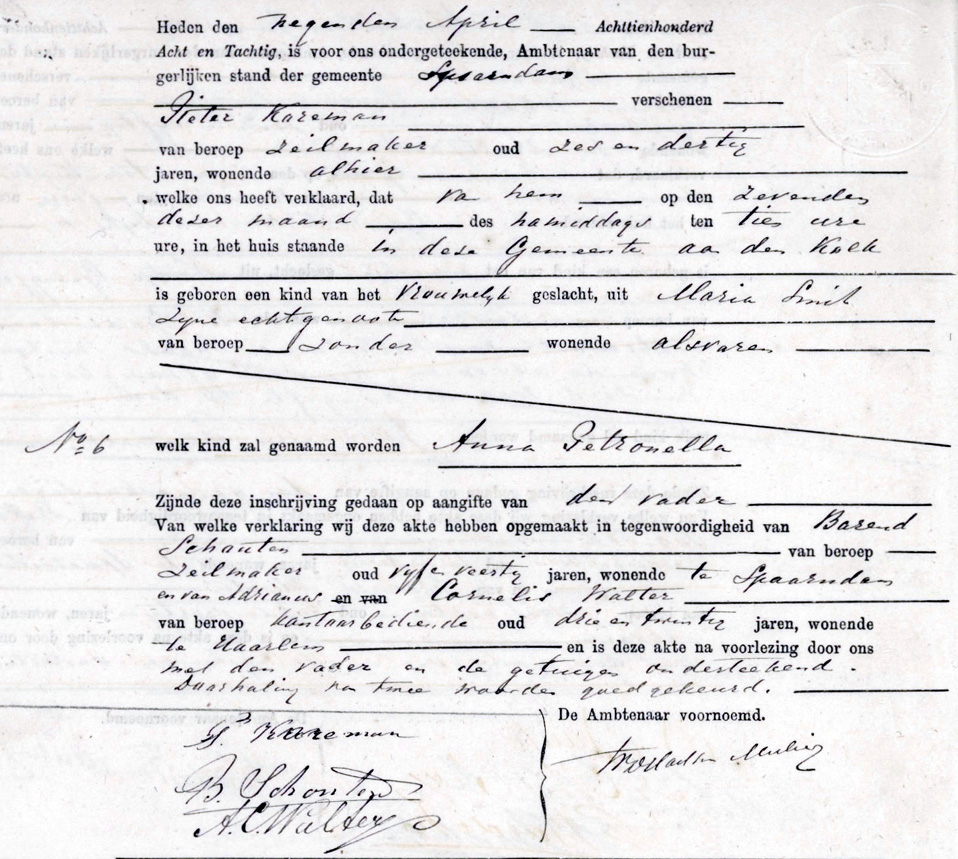 Heden den negenden April — Achttienhonderd
Acht en Tachtig, is voor ons ondergeteekende, Ambtenaar van den bur-
gerlijken stand der gemeente Spaarndam
verschenen
Pieter Kareman
van beroep zeilmaker oud zes en dertig
jaren, wonende alhier
welke ons heeft verklaard, dat op den zevenden
dezer maand des namiddags ten ure
ure, in het huis staande in deze Gemeente aan den Kolk
is geboren een kind van het Vrouwelijk geslacht, uit Maria Smit
zijne echtgenoote
van beroep zonder wonende alsvoren
No 6 welk kind zal genaamd worden Anna Petronella
Zijnde deze inschrijving gedaan op aangifte van den vader
Van welke verklaring wij deze akte hebben opgemaakt in tegenwoordigheid van Barend
Schouten van beroep
zeilmaker oud vyf en veertig jaren, wonende te Spaarndam
en van Adrianus en van Cornelis Walter
van beroep kantoorbediende oud drie en twintig jaren, wonende
te Haarlem en is deze akte na voorlezing door ons
met den vader en de getuigen onderteekend.
Doorhaling van twee woorden goedgekeurd.
P. Kareman De Ambtenaar voornoemd.
B. Schouten
A. C. Walter